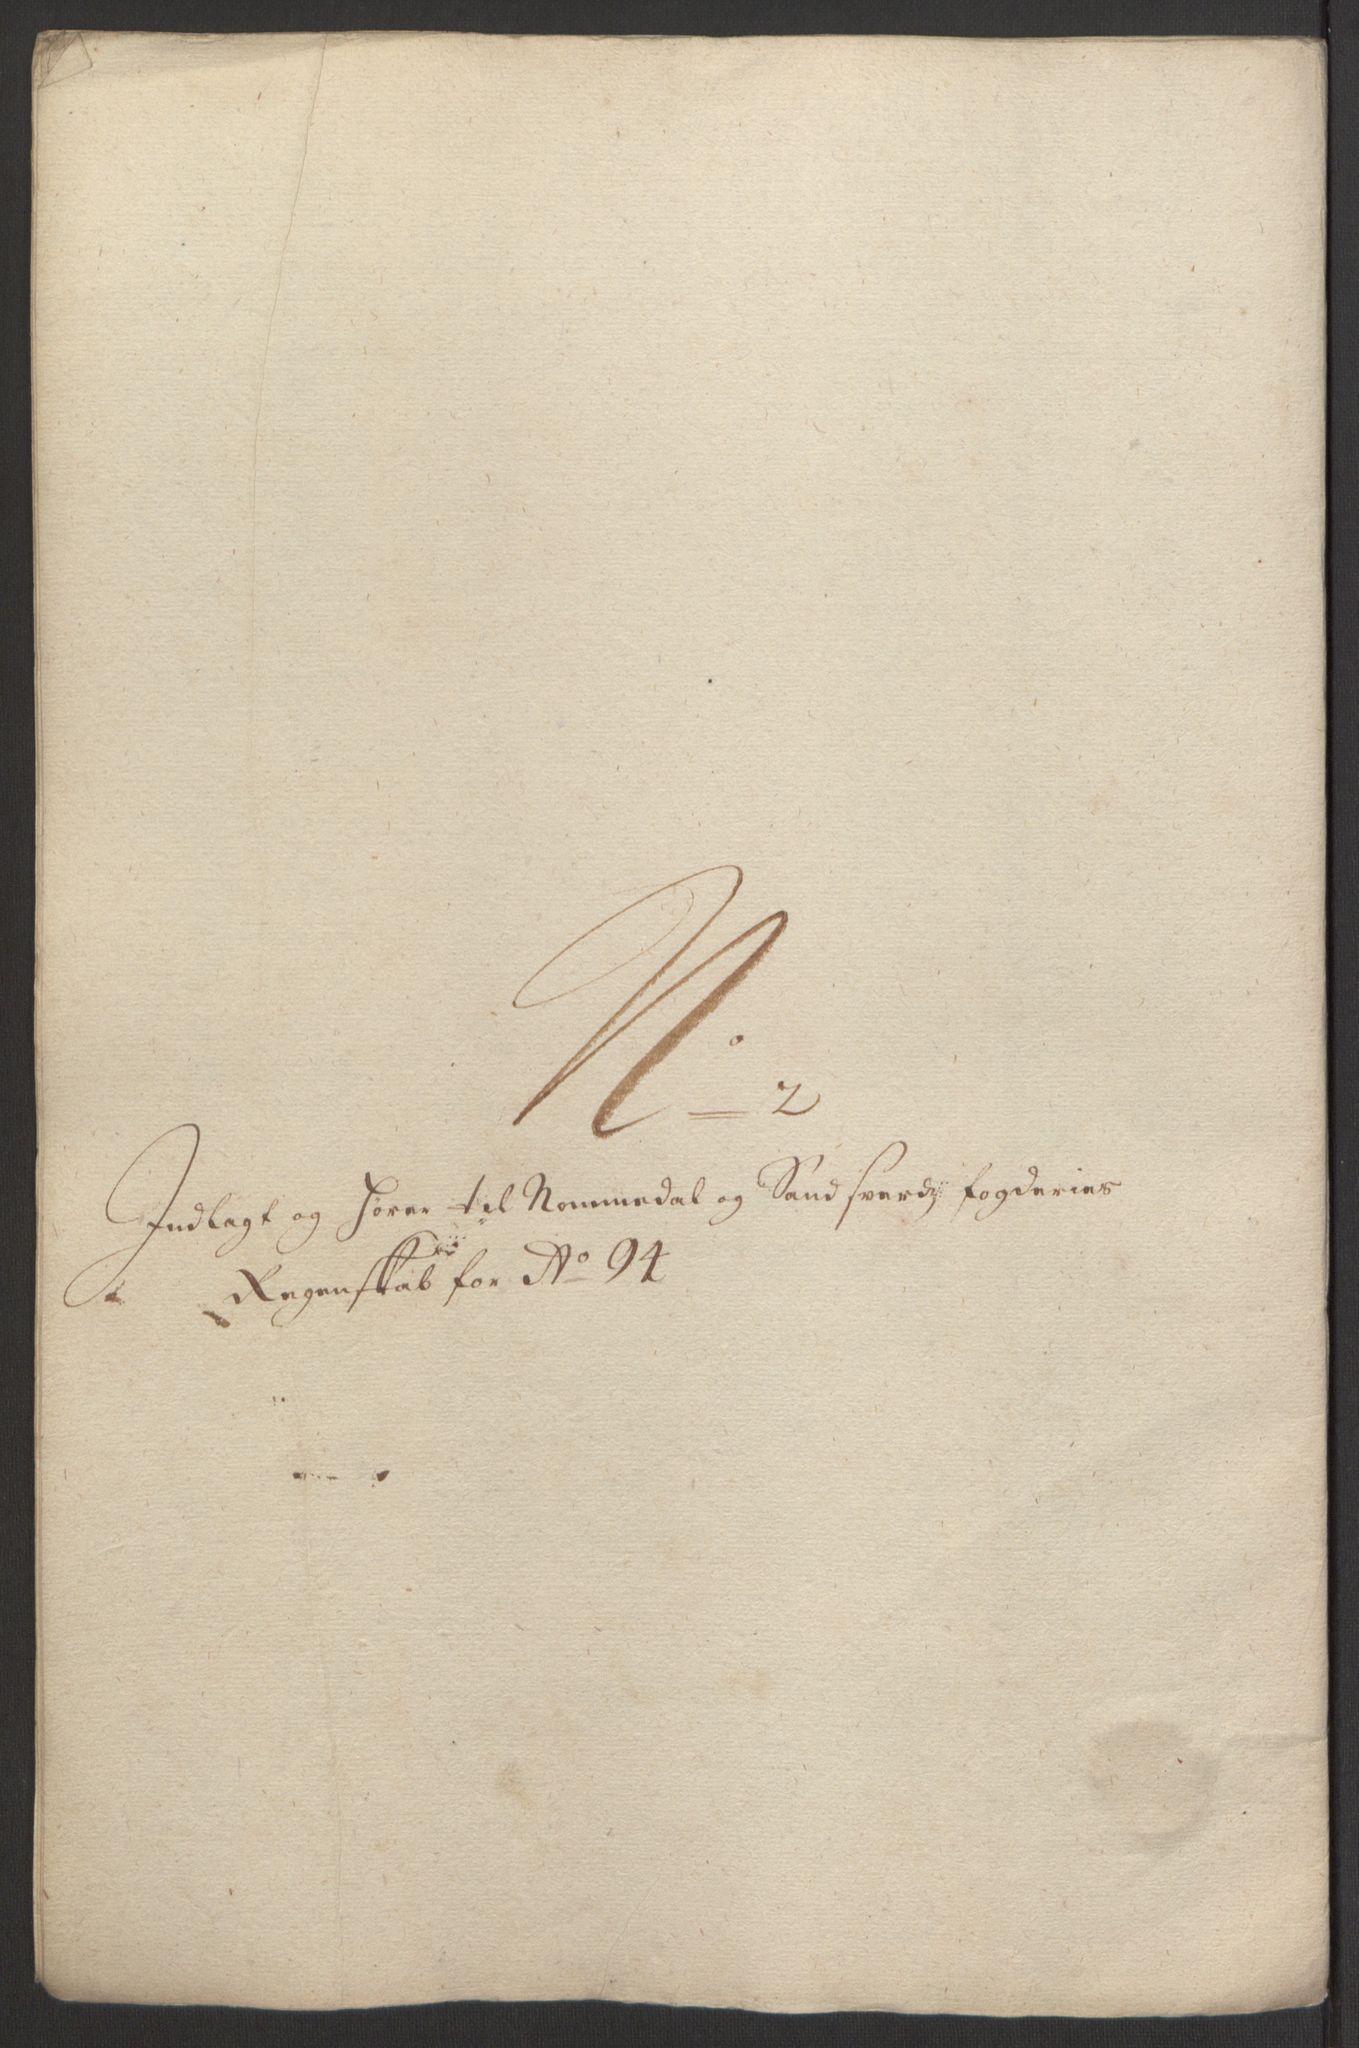 No 2
Indlagt og hører til Nommedal og Sandsverdz fogderies
Regenskab for Ao 94